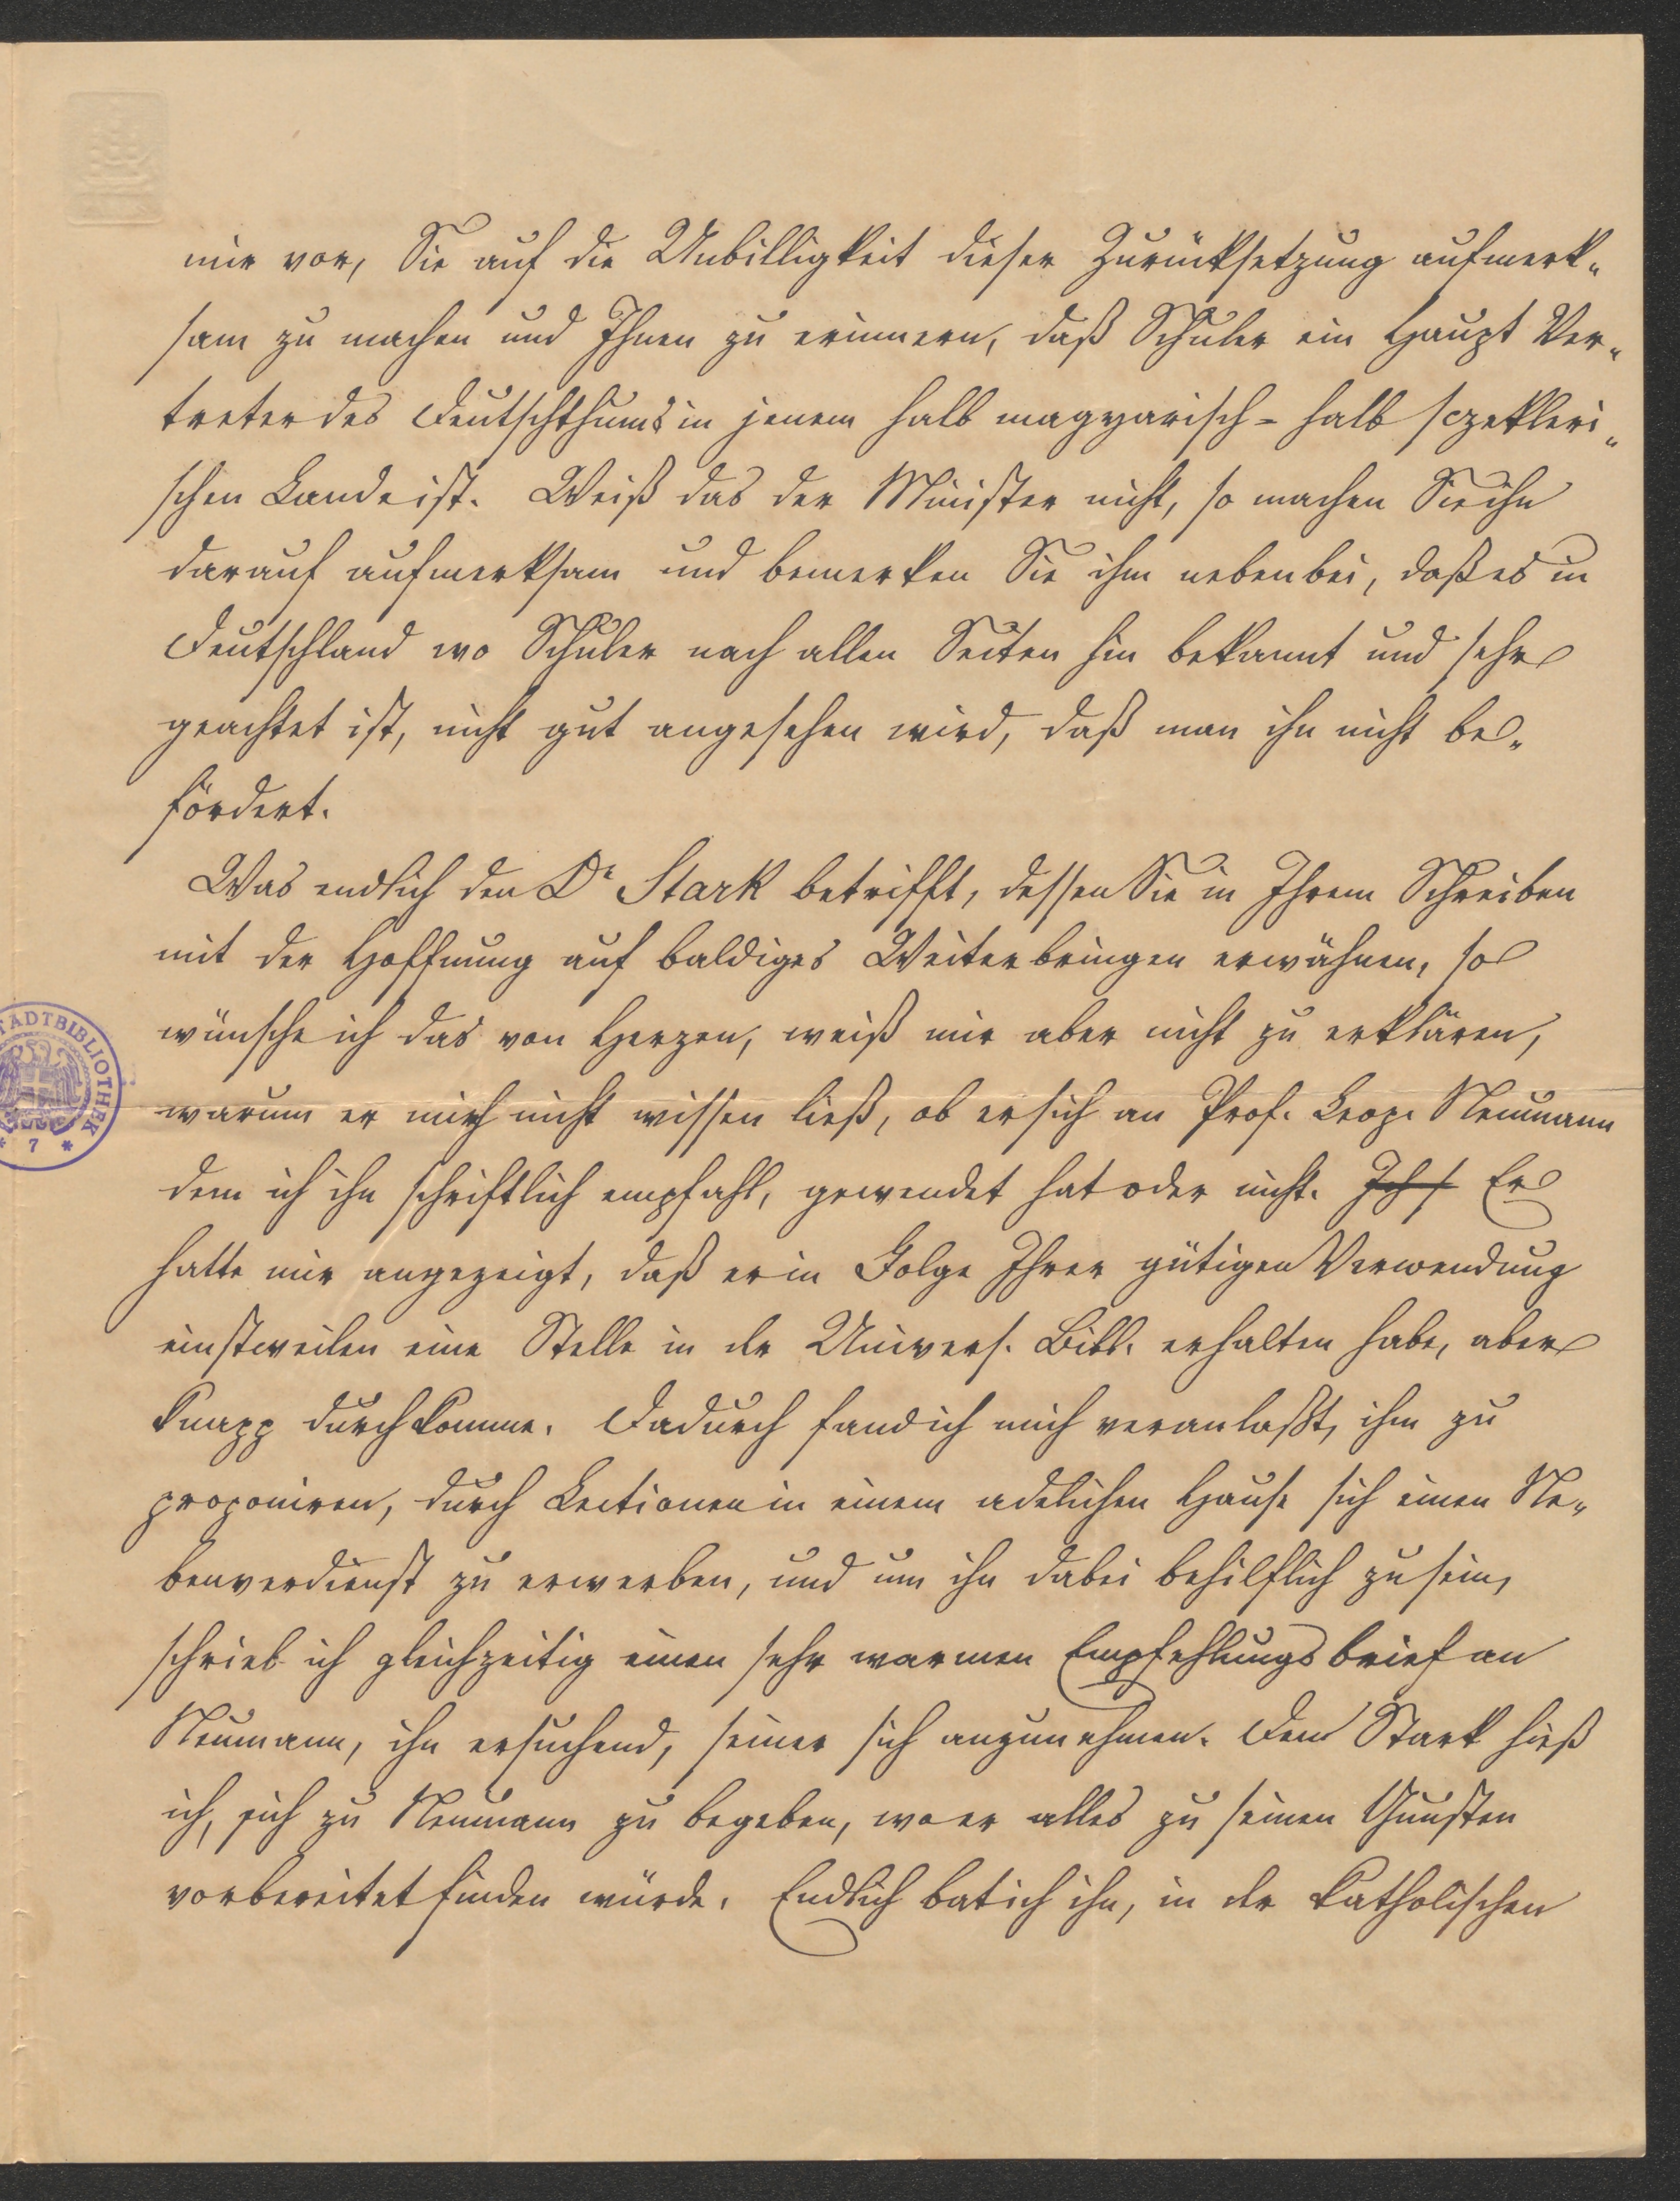 mir vor, Sie auf die Unbilligkeit dieser Zurücksetzung aufmerk„
sam zu machen und Ihnen zu erinnern, daß Schuler ein Haupt Ver„
treter des Deutschthums in jenem halb magyarisch- halb sczekleri„
schen Lande ist. Weiß das der Minister nicht, so machen Sie ihn
darauf aufmerksam und bemerken Sie ihm nebenbei, daß es in
Deutschland wo Schuler nach allen Seiten hin bekannt und sehr
geachtet ist, nicht gut angesehen wird, daß man ihn nicht be„
fördert.
Was endlich den Dr Stark betrifft, dessen Sie in Ihrem Schreiben
mit der Hoffnung auf baldiges Weiterbringen erwähnen, so
STADTBIBLIOTHEK
* 7 *
wünsche ich das von Herzen, weiß mir aber nicht zu erklären,
warum er mich nicht wissen ließ, ob er sich an Prof. Leop. Neumann
dem ich ihn schriftlich empfahl, gewendet hat oder nicht. Ich Er
hatte mir angezeigt, daß er in Folge Ihrer gütigen Verwendung
einstweilen eine Stelle in der Univers. Bibl. erhalten habe, aber
knapp durchkomme. Dadurch fand ich mich veranlaßt, ihm zu
proponiren, durch Lectionen in einem adelichen Hause sich einen Ne„
benverdienst zu erwerben, und um ihn dabei behilflich zu sein,
schrieb ich gleichzeitig einen sehr warmen Empfehlungsbrief an
Neumann, ihn ersuchend, seiner sich anzunehmen. Den Stark hieß
ich, sich zu Neumann zu begeben, wo er alles zu seinen Gunsten
vorbereitet finden würde. Endlich bat ich ihn, in der katholischen